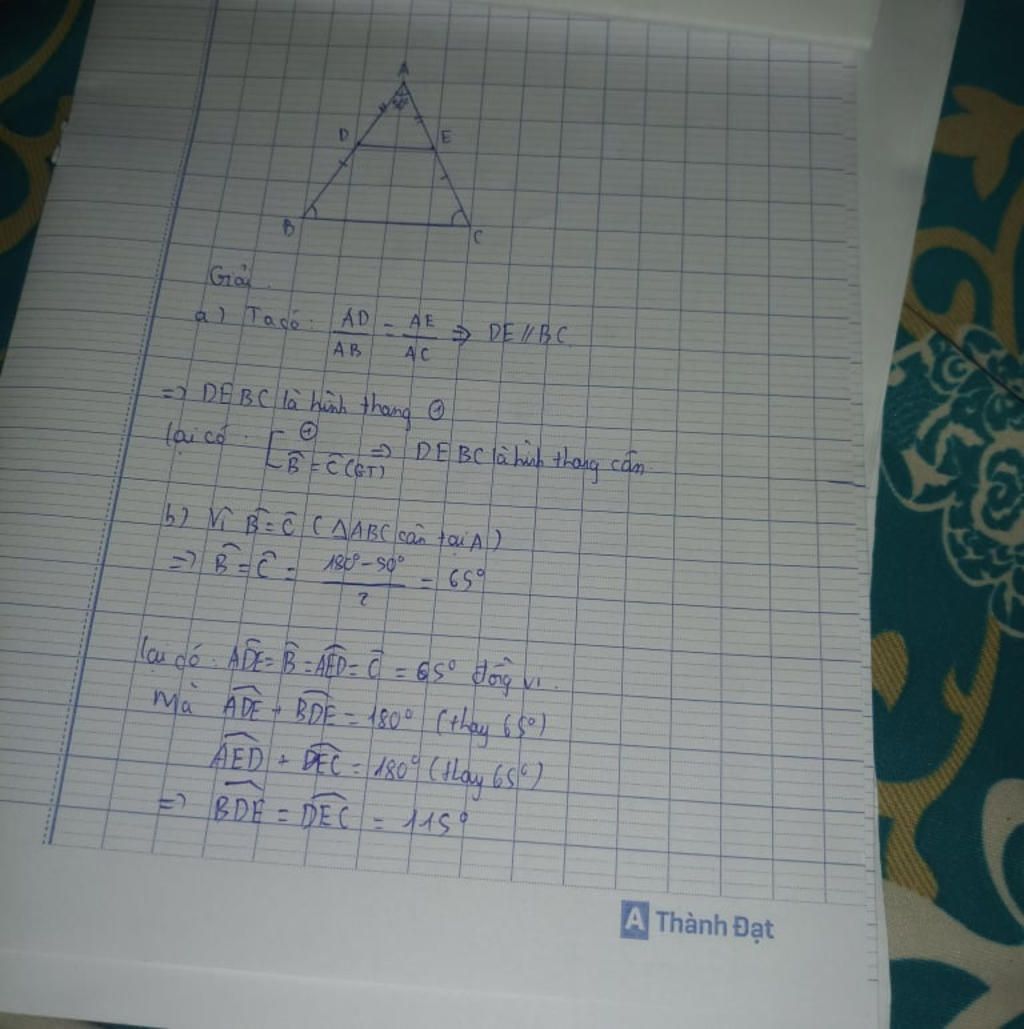 A
50°
D E
B C
Giải.
a) Ta có: AD/AB = AE/AC => DE // BC.
=> DEBC là hình thang ①
lại có: [ ①
B̂ = Ĉ (GT) => DEBC là hình thang cân.
b) Vì B̂ = Ĉ (△ABC cân tại A)
=> B̂ = Ĉ = (180° - 50°)/2 = 65°
lại có: ADE = B̂ = AED = Ĉ = 65° đồng vị.
Mà ADE + BDE = 180° (thay 65°)
AED + DEC = 180° (thay 65°)
=> BDE = DEC = 115°
A Thành Đạt